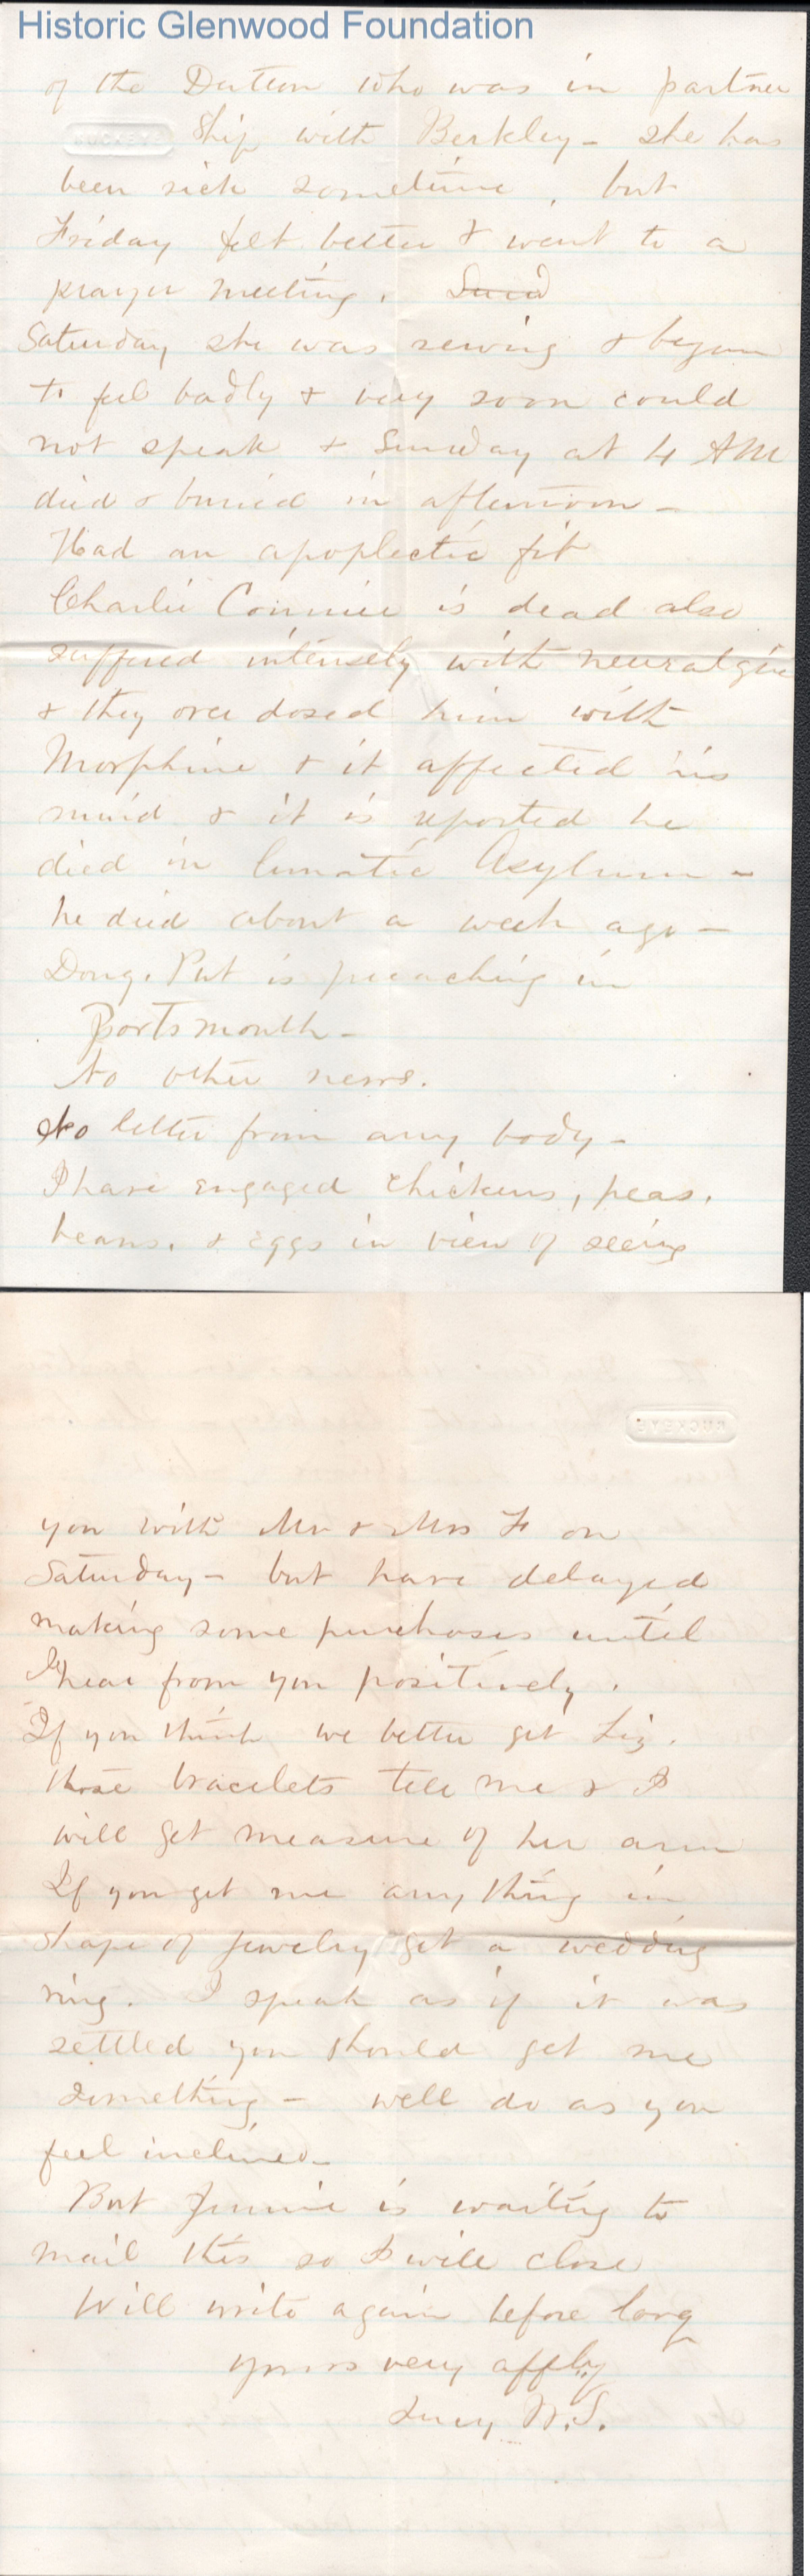 Historic Glenwood Foundation
of the Dutton who was in partner
BUCKEYE
ship with Berkley - she has
been sick sometime, but
Friday felt better & went to a
prayer meeting.
Saturday she was sewing & began
to feel badly & very soon could
not speak & Sunday at 4 AM
died & buried in afternoon -
Had an apoplectic fit
Charlie is dead also
suffered intensely with neuralgia
& they over dosed him with
Morphine & it affected his
mind & it is reported he
died in lunatic Asylum -
he died about a week ago -
Doug. Put is preaching in
Portsmouth -
No other news.
No letter from any body -
I have engaged chickens, peas,
beans, & eggs in view of seeing
BUCKEYE
you with Mr & Mrs F on
Saturday - but have delayed
making some purchases until
I hear from you positively.
If you think we better get Liz.
those bracelets tell me & I
will get measure of her arm
If you get me any thing in
shape of jewelry get a wedding
ring. I speak as if it was
settled you should get me
something - well do as you
feel inclined -
But Jennie is waiting to
mail this so I will close
Will write again before long
yours very affly
Lucy W.S.